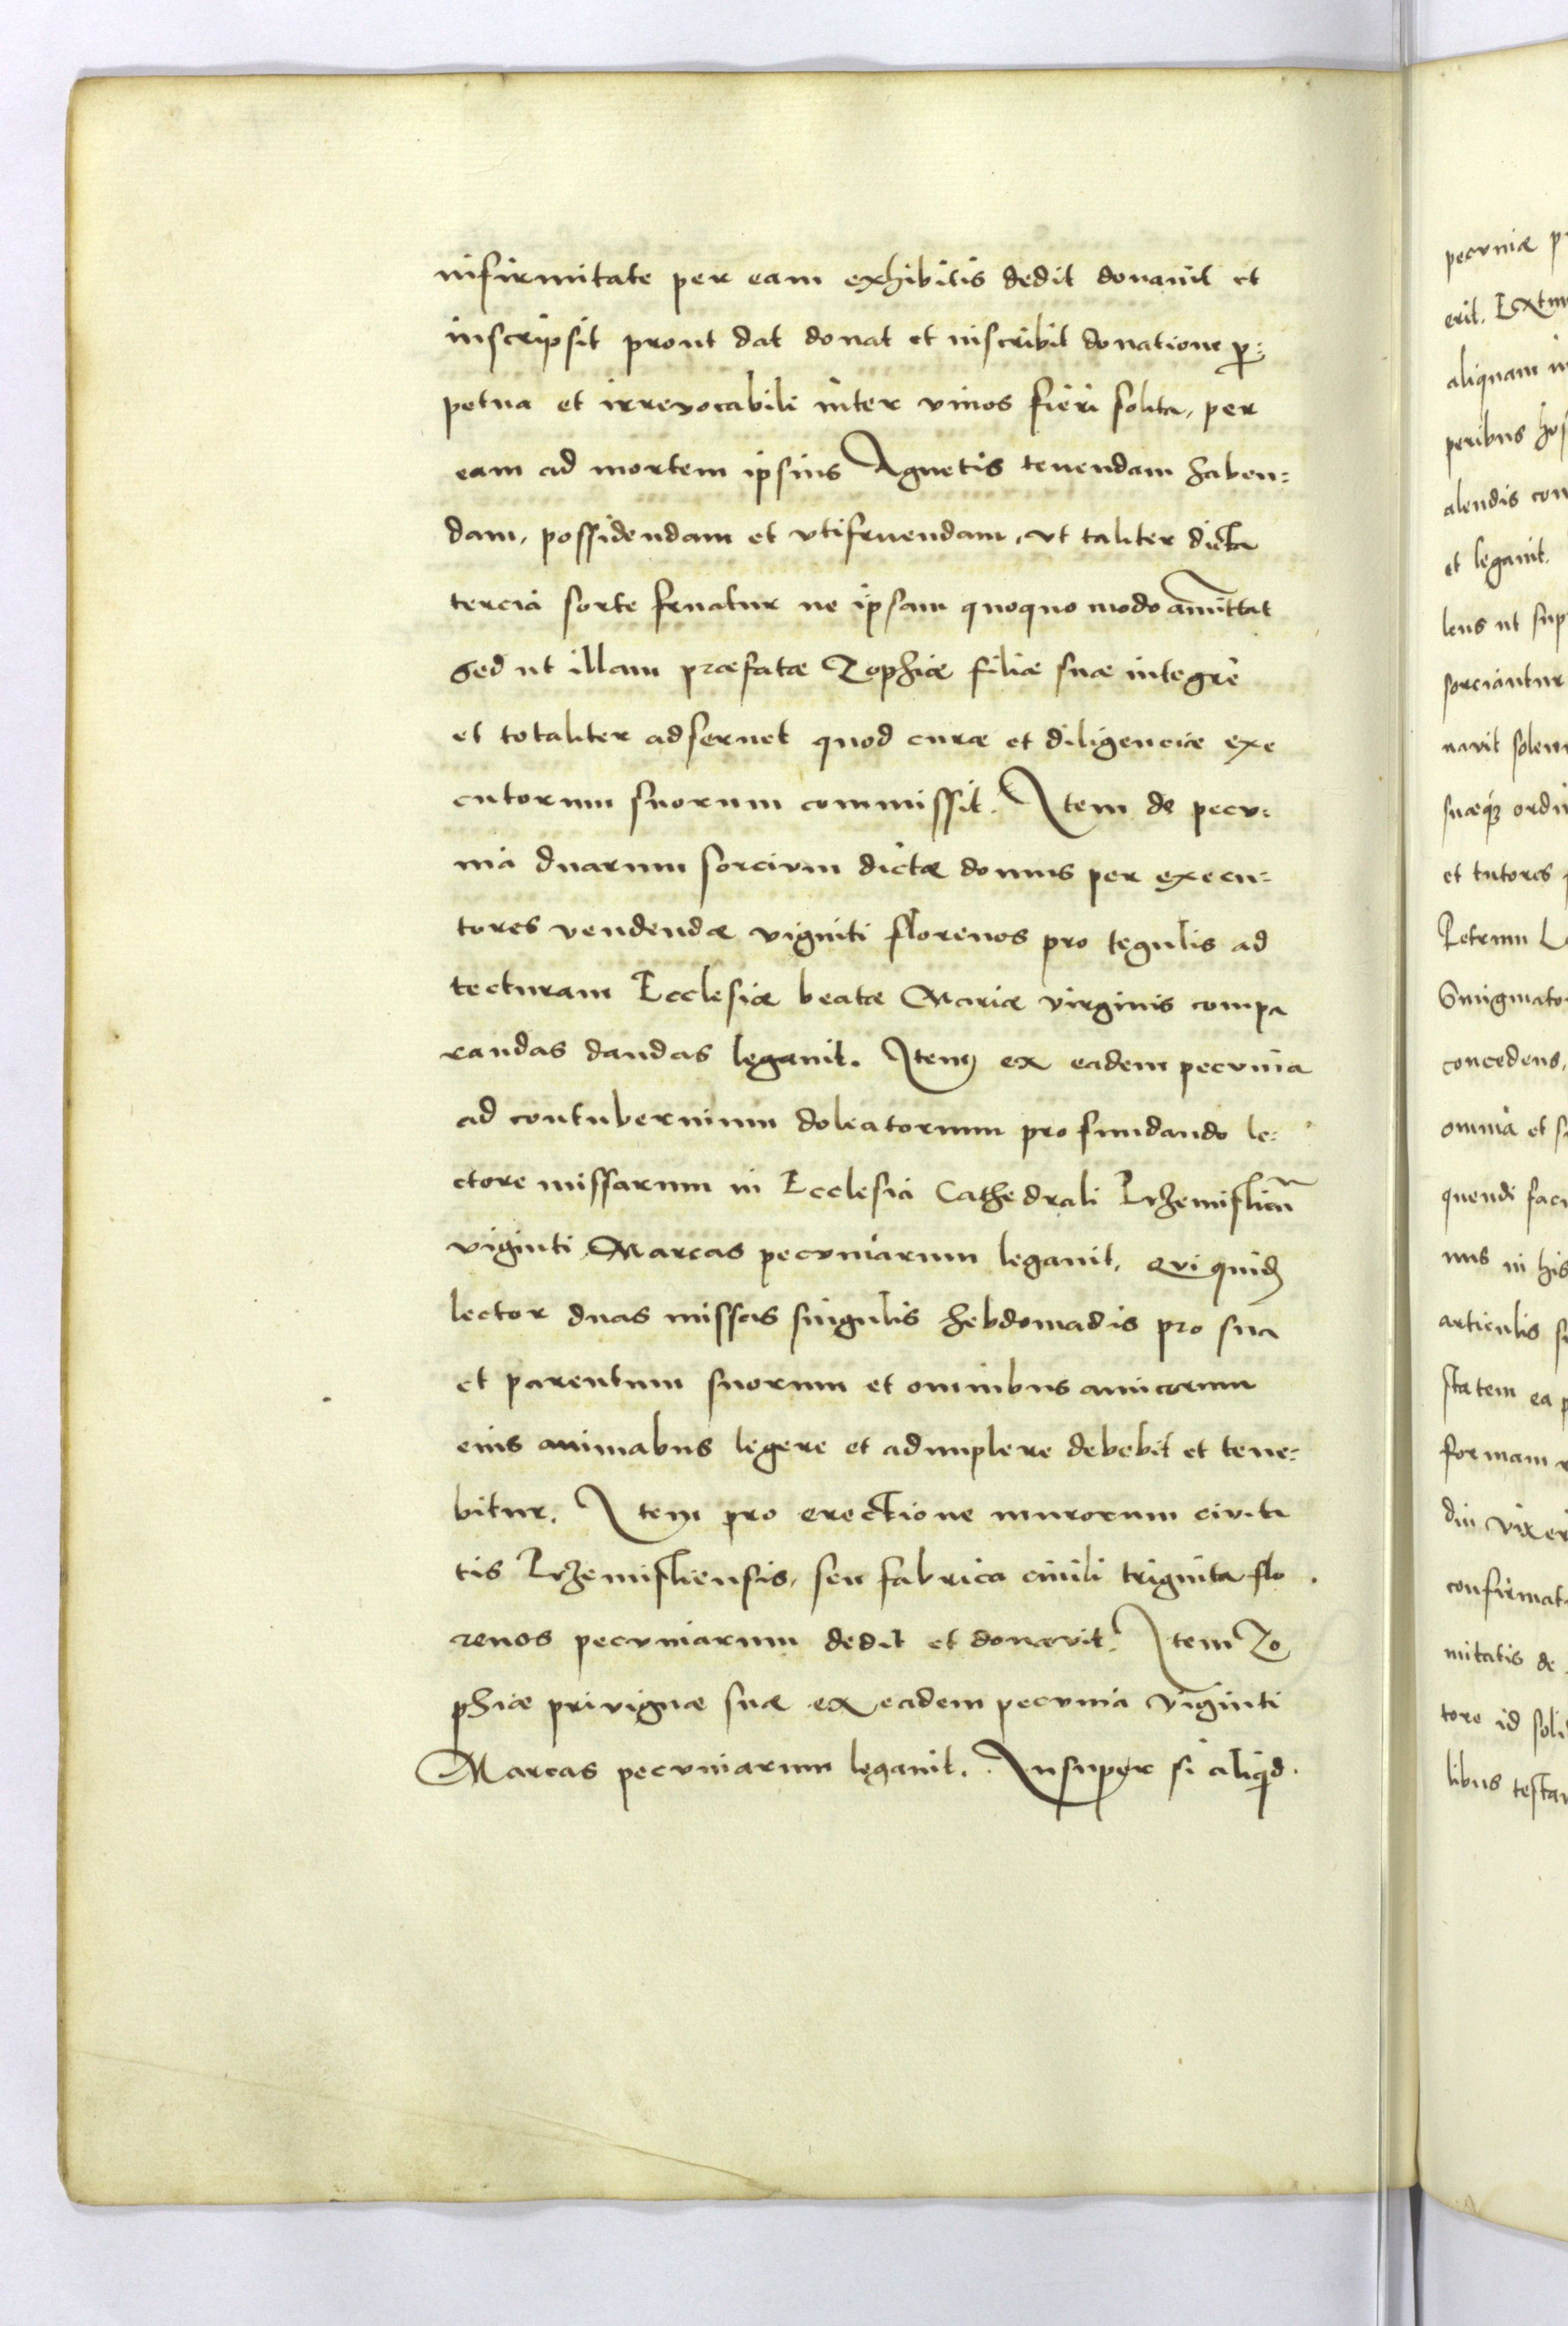 infirmitate per eam exhibitis dedit donauit et
inscripsit prout dat donat et inscribit donatione ꝑ:
petua et irreuocabili inter viuos fieri solita, per
eam ad mortem ipsius Agnetis tenendam haben:
dam, possidendam et vtifruendam, vt taliter dicta
tercia sorte fruatur ne ipsam quoquo modo amittat
sed ut illam præfatæ Zophiæ filiæ suæ integrè
et totaliter adseruet quod curæ et diligenciæ exe
cutorum suorum commissit. Item de pecu:
nia duarum sorcium dictæ domus per execu:
tores vendendæ viginti florenos pro tegulis ad
tecturam Ecclesiæ beatæ Mariæ virginis compa
randas dandas legauit. Item ex eadem pecunia
ad contubernium doleatorum pro fundando le:
ctore missarum in Ecclesia Cathedrali Przemislien̄
viginti Marcas pecuniarum legauit, Qui quidē
lector duas missas singulis hebdomadis pro sua
et parentum suorum et omnibus amicorum
eius animabus legere et adimplere debebit et tene:
bitur. Item pro erectione murorum ciuita
tis Przemisliensis, seu fabrica ciuili triginta flo
renos pecuniarum dedit et donavit. Item Zo
phiæ priuignæ suæ ex eadem pecunia viginti
Marcas pecuniarum legauit. Insuper si aliqd.
pecuniæ
erit.
aliquam
peribus
alendis
et legauit.
lens ut
sorciantur
navit
suæqꝫ
et tutores
Petrum
concedens,
omnia et
quendi
nus in his
articulis
statem ea
formam
diu vixer
confirmat
mitatis de
tore id
libus